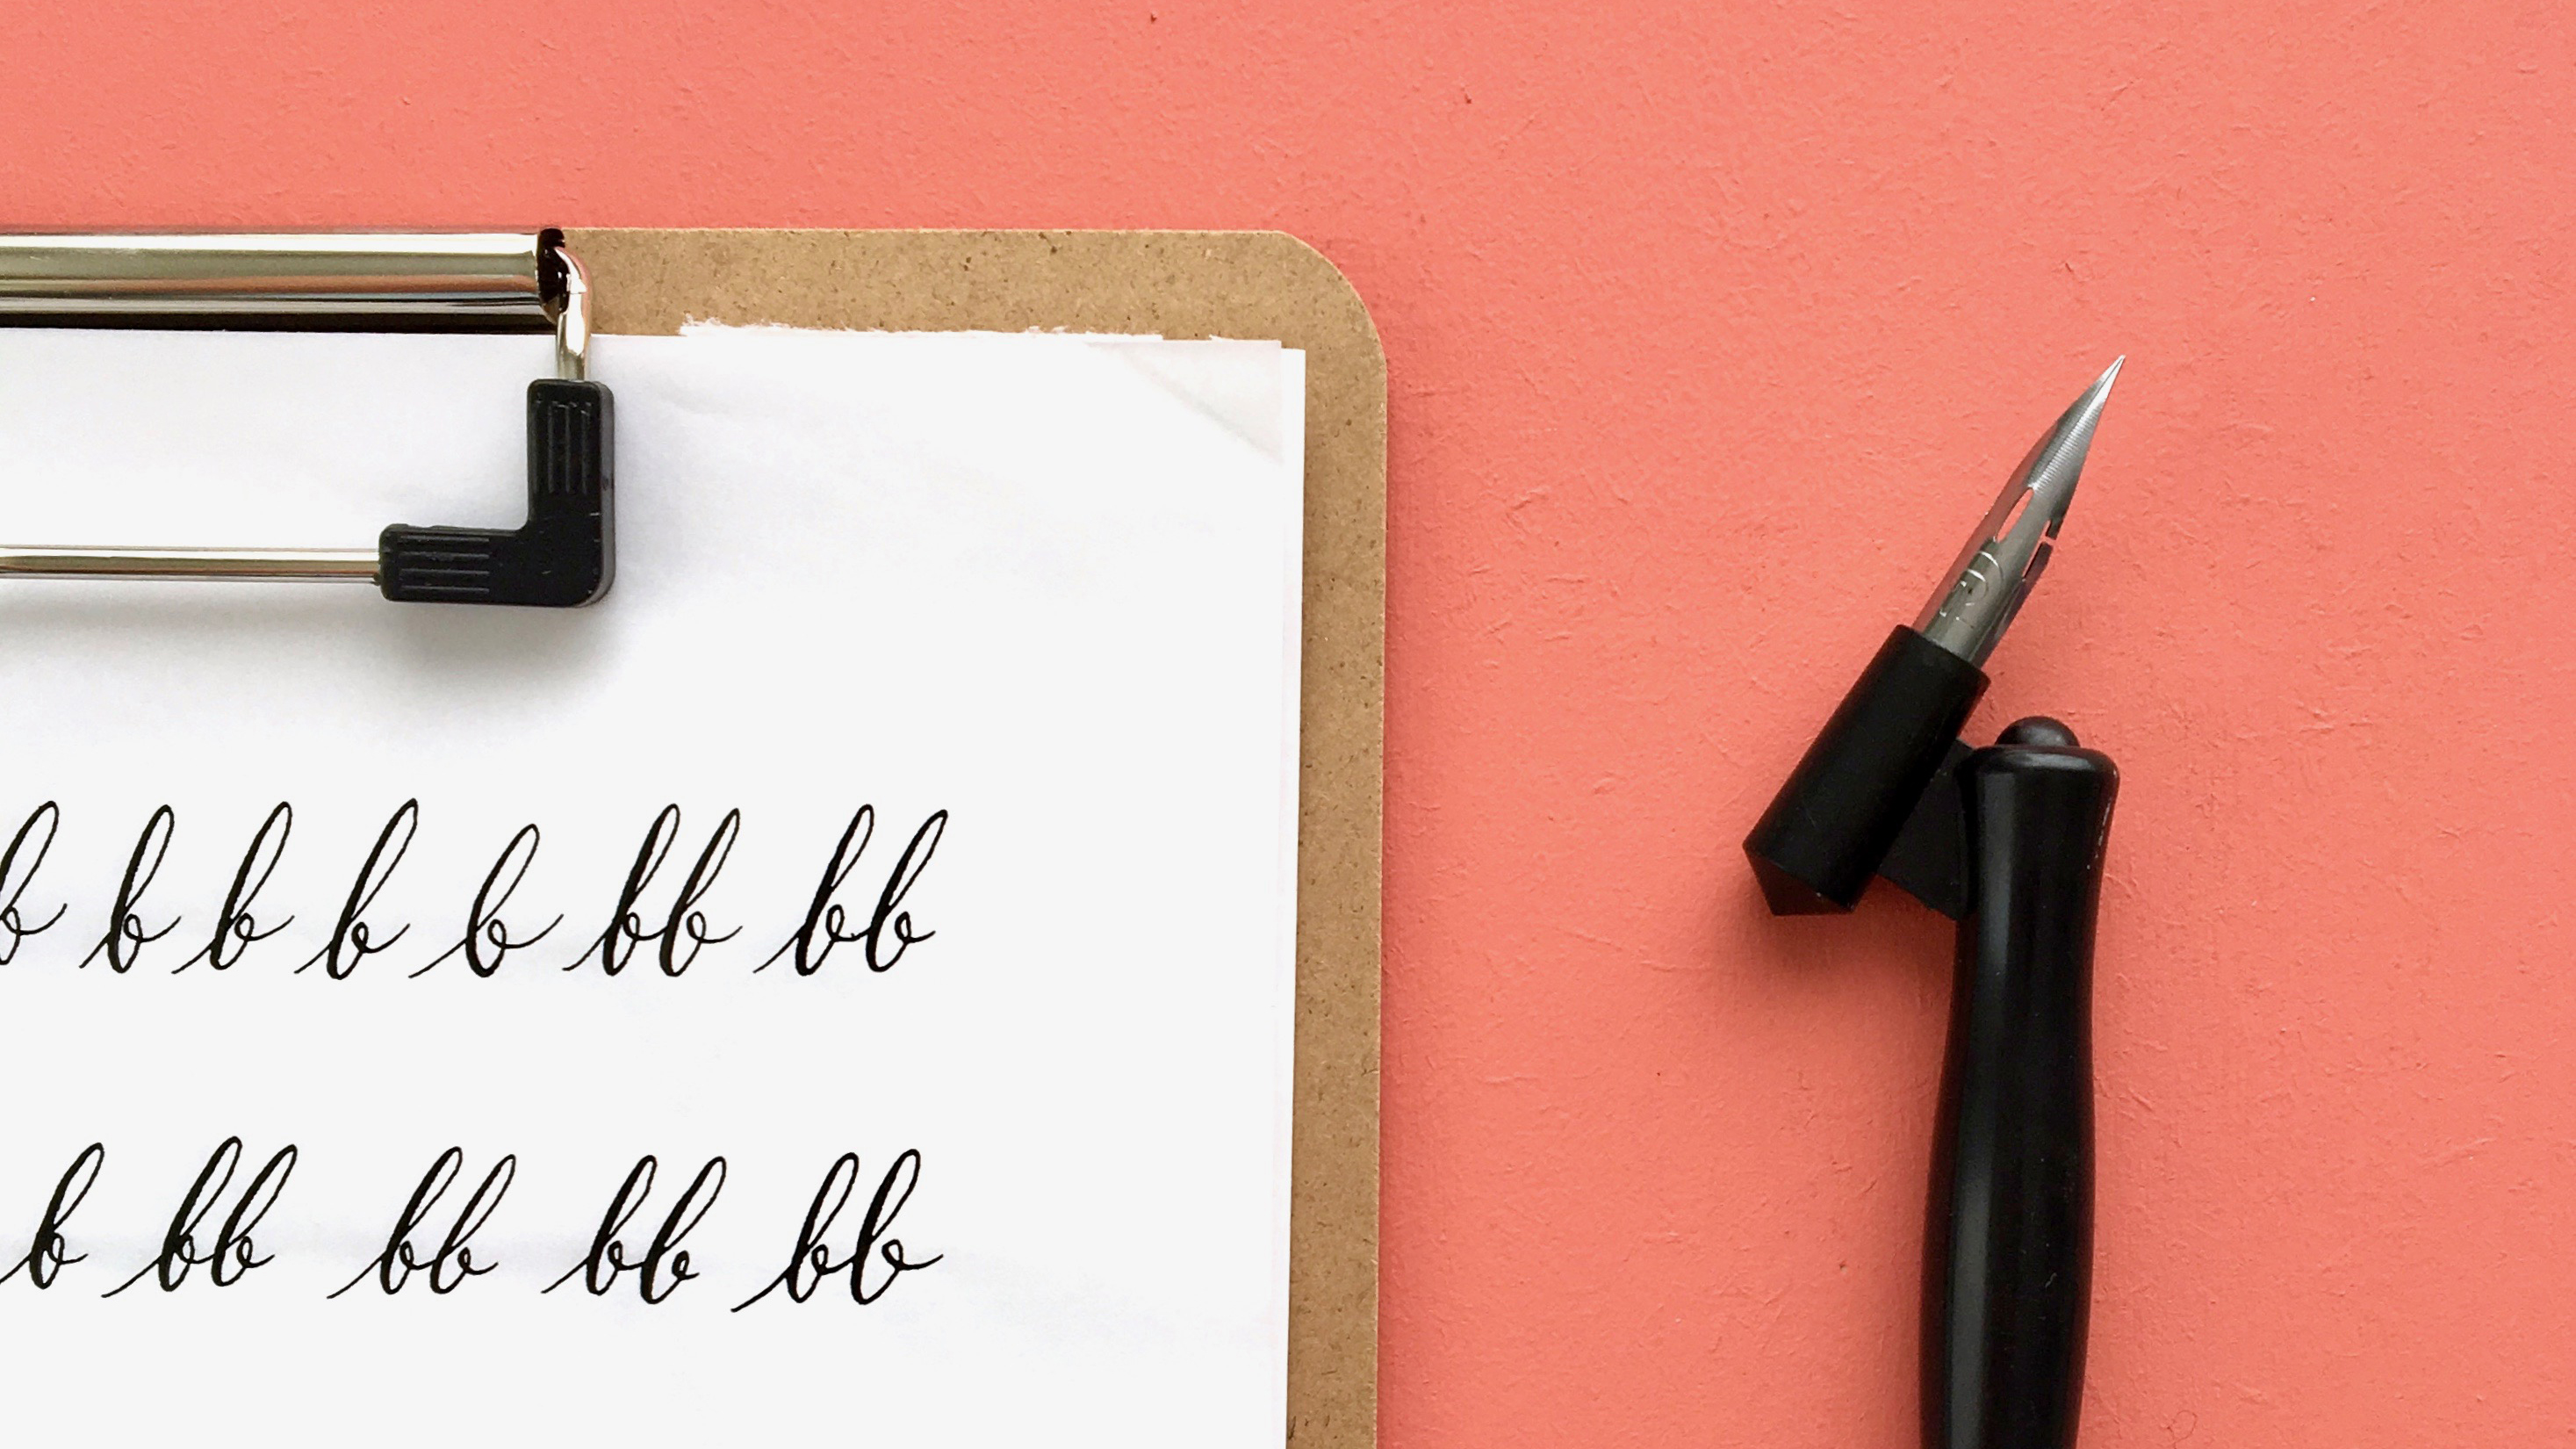 b b b b b bb bb
b bb bb bb bb